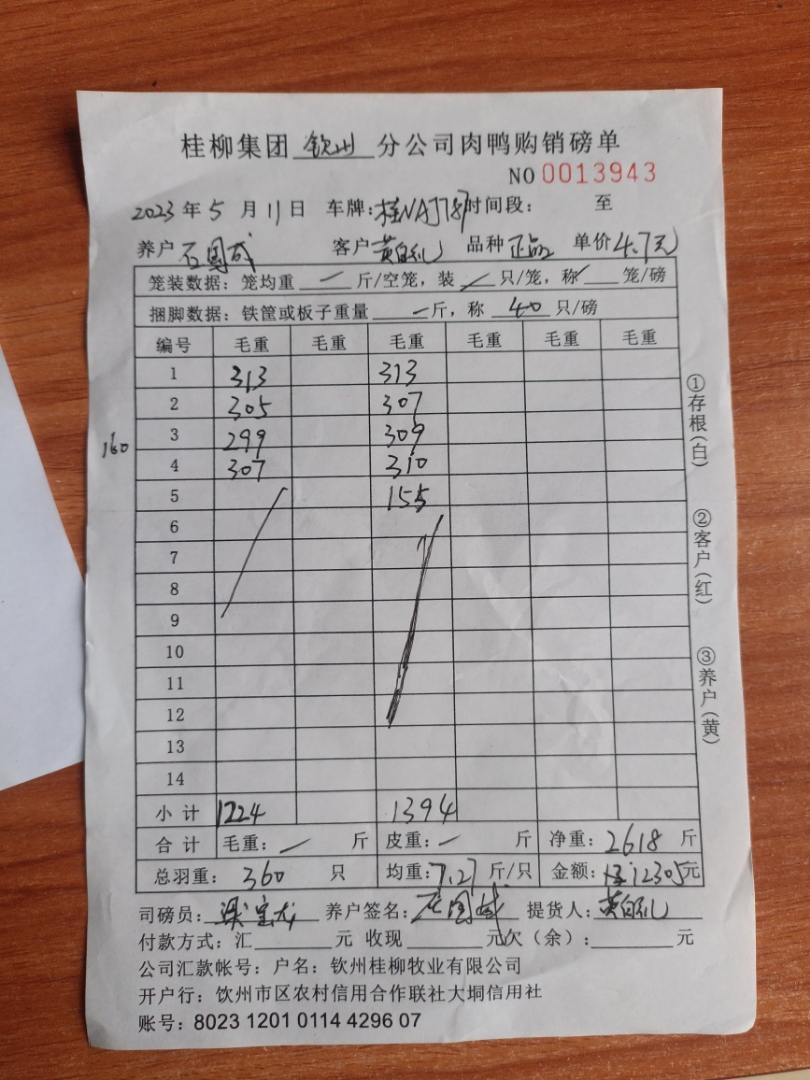 桂柳集团 钦州 分公司肉鸭购销磅单
NO 0013943
2023 年 5 月 11 日 车牌: 时间段: 至
养户 石国成 客户 品种 正品 单价 4.7元
笼装数据: 笼均重 一 斤/空笼, 装 只/笼, 称 笼/磅
捆脚数据: 铁筐或板子重量 一 斤, 称 40 只/磅
编号 毛重 毛重 毛重 毛重 毛重 毛重
1 313 313
2 305 307
160 3 299 309
4 307 310
5 155
6
7
8
9
10
11
12
13
14
小 计 1224 1394
合 计 毛重: 一 斤 皮重: 一 斤 净重: 2618 斤
总羽重: 360 只 均重: 7.27 斤/只 金额: 12305元
司磅员: 养户签名: 石国成 提货人:
付款方式: 汇 元 收现 元欠(余): 元
公司汇款帐号: 户名: 钦州桂柳牧业有限公司
开户行: 饮州市区农村信用合作联社大垌信用社
账号: 8023 1201 0114 4296 07
①存根(白)
②客户(红)
③养户(黄)